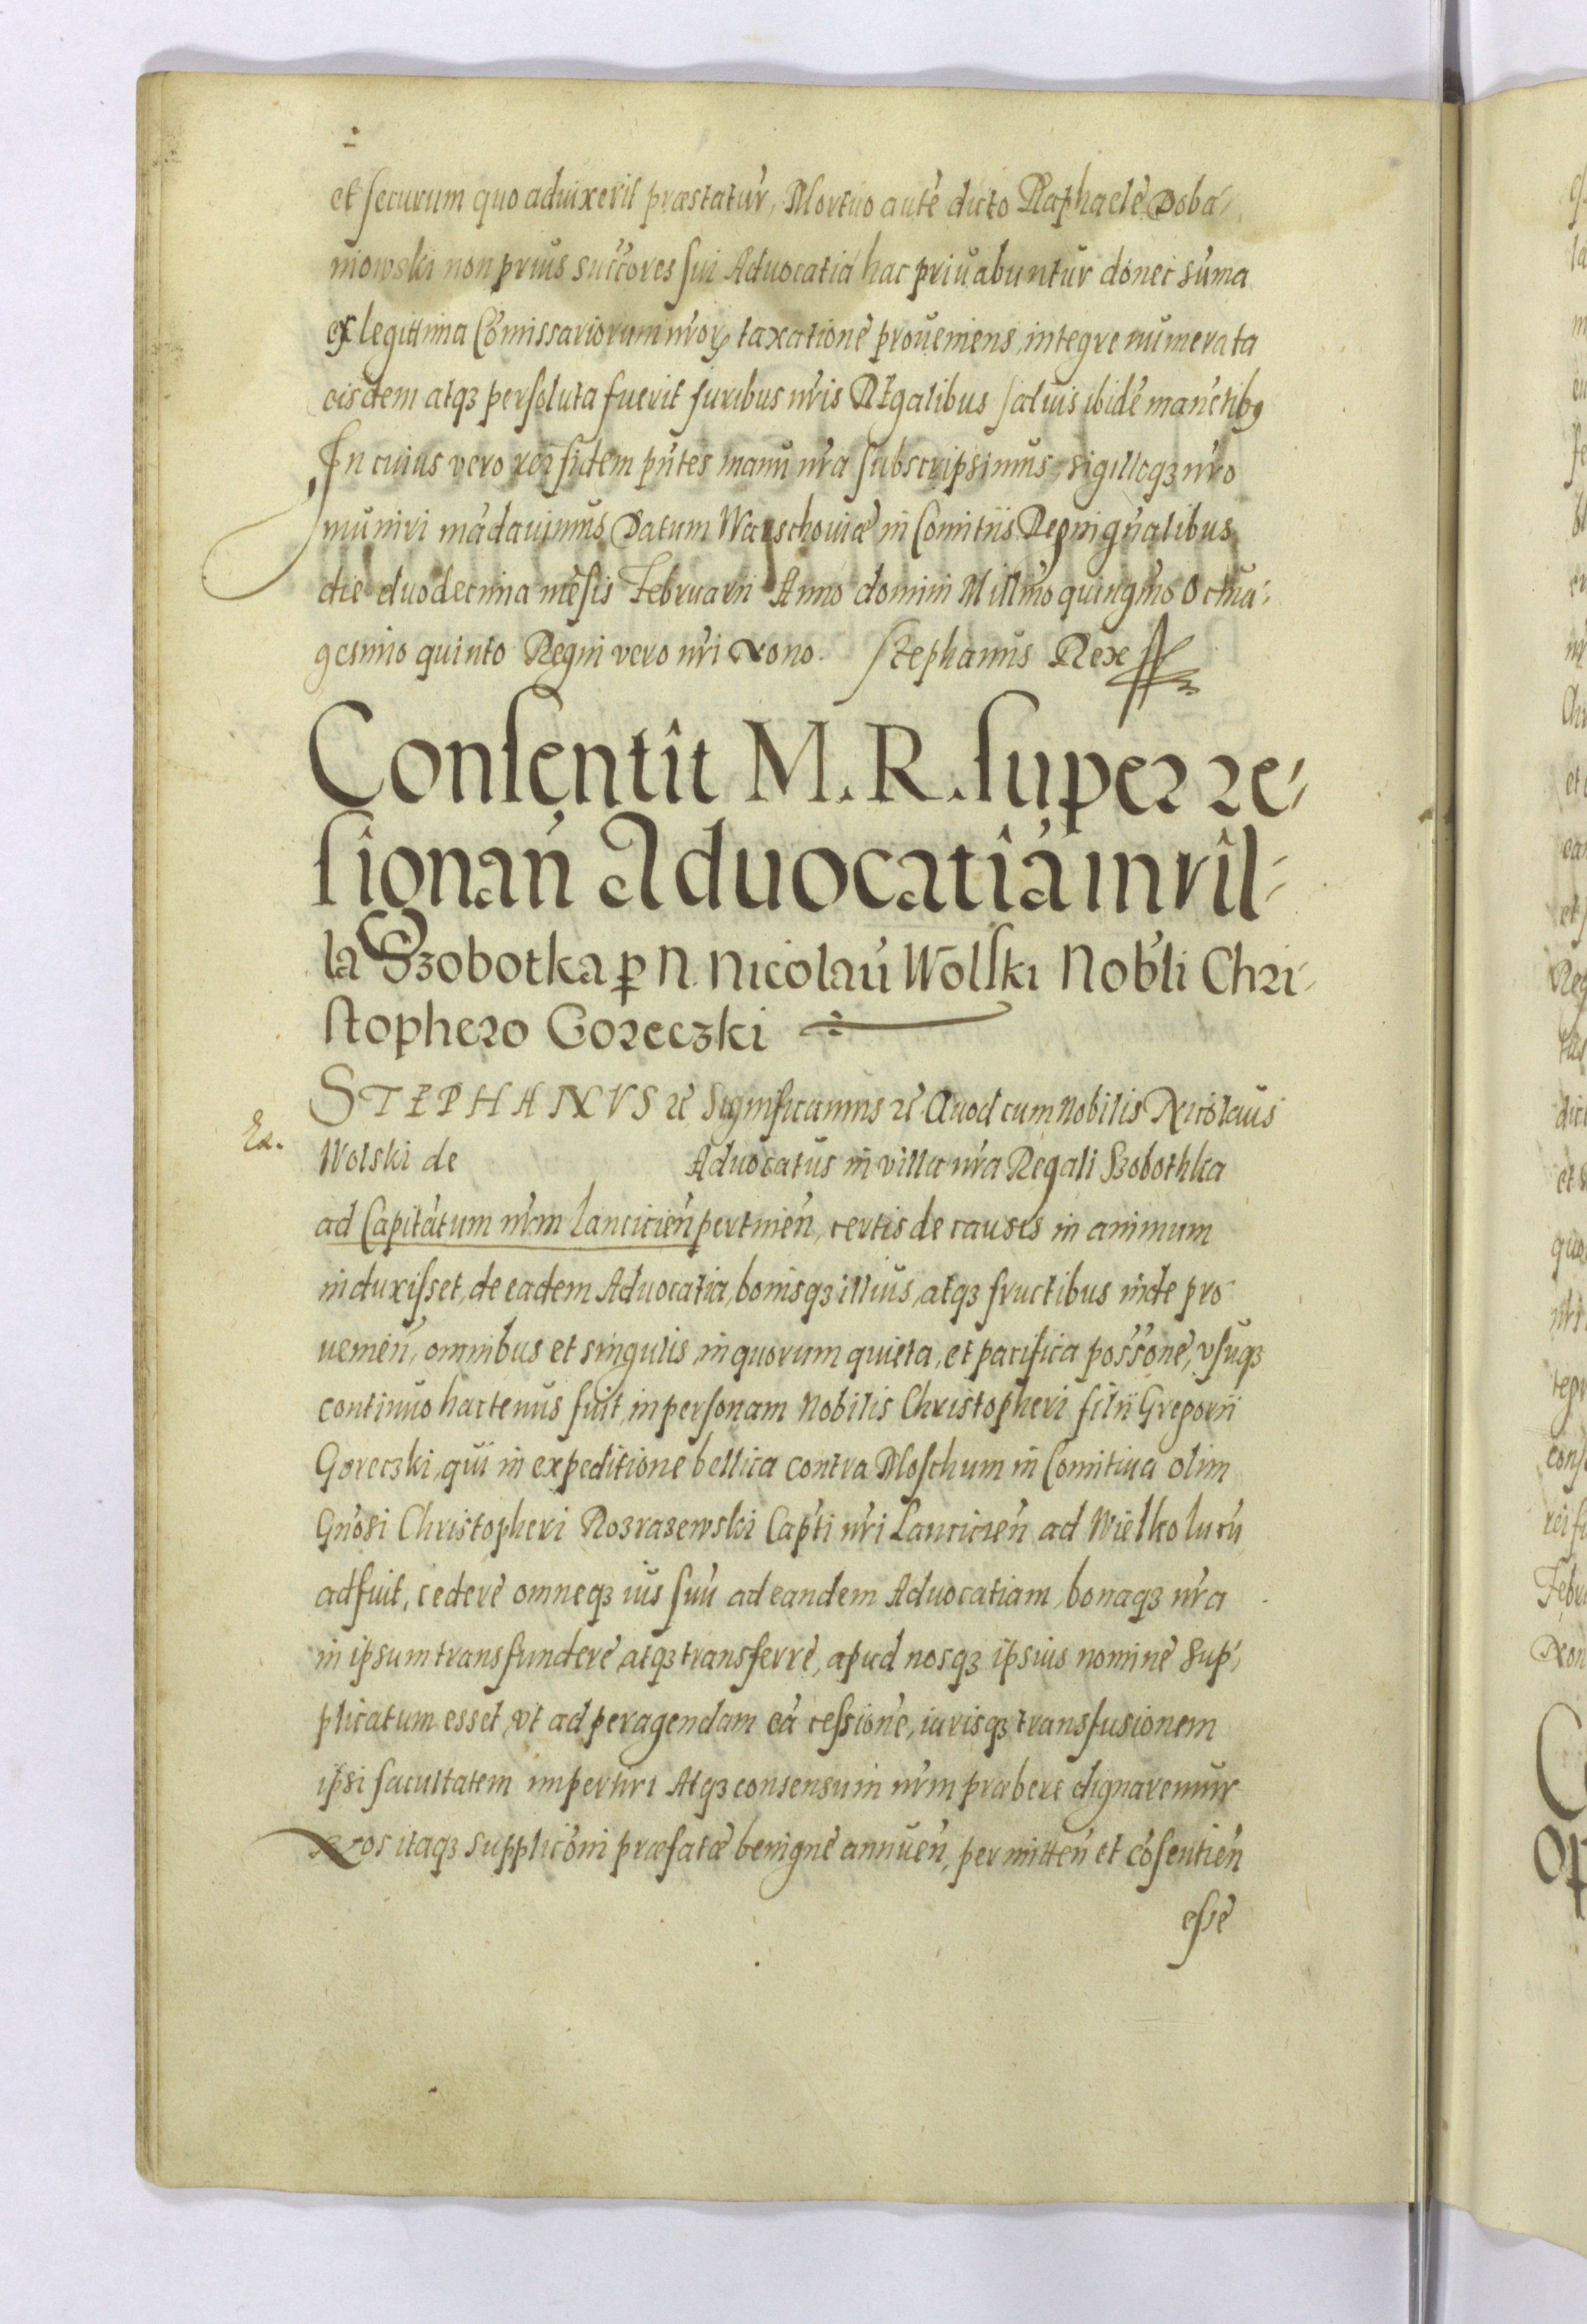 et securum quo aduixerit præstatur, Mortuo autē dicto Raphaele Doba-
niowski non prius succ̄ores sui Aduocatia hac priuabuntur donec sūma
ex legittima Cōmissariorum nr̄oꝝ taxatione proueniens, integre numerata
eisdem atqꝫ persoluta fuerit Iuribus nr̄is Regalibus saluis ibidē manētibꝰ
In cuius vero rei fidem pn̄tes manu nr̄a subscripsimus, sigilloqꝫ nr̄o
muniri mādauimus Datum Warschouiæ in Comitiis Regni gn̄alibus
die duodecima mēsis Februarii Anno domini Millm̄o quingm̄o Octua-
gesimo quinto Regni vero nr̄i Nono. Stephanus Rex
Consentit M. R. super re-
signan̄ Aduocatiā in vil-
la Szobotka ꝑ N. Nicolaū Wolski Nob̄li Chri-
stophero Goreczki
STEPHANVS ꝛc̄ Significamus ꝛc̄ Quod cum Nobilis Nicolaus
Ex.
Wolski de Aduocatus in villa nr̄a Regali Szobothka
ad Capitātum nr̄m Lancicien̄ pertinen̄, certis de causis in animum
induxisset, de eadem Aduocatia, bonisqꝫ illius, atqꝫ fructibus inde pro
uenien̄, omnibus et singulis, in quorum quieta, et pacifica poss̄one, vsuqꝫ
continuo hactenus fuit, in personam Nobilis Christopheri filii Gregorii
Goreczki, qui in expeditione bellica contra Moschum in Comitiua olim
Gn̄osi Christopheri Rozrazewski Cap̄ti nr̄i Lancicien̄ ad Wielkolucū
adfuit, cedere omneqꝫ ius suū ad eandem Aduocatiam, bonaqꝫ nr̄a
in ipsum transfundere atqꝫ transferre, apud nosqꝫ ipsius nomine sup-
plicatum esset, vt ad peragendam eā cessionē, iurisqꝫ transfusionem
ipsi facultatem impertiri Atqꝫ consensum nr̄m præbere dignaremur
Nos itaqꝫ supplicōni præfatæ benigne annuen̄, permitten̄ et cōsentien̄
esse